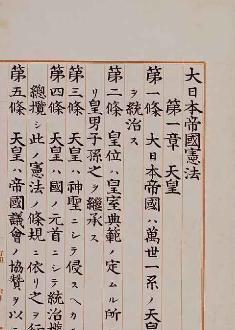 大日本帝國憲法
第一章 天皇
第一條 大日本帝國ハ萬世一系ノ天皇
ヲ統治ス
第二條 皇位ハ皇室典範ノ定ムル所
リ皇男子孫之ヲ繼承ス
第三條 天皇ハ神聖ニシテ侵スヘカ
第四條 天皇ハ國ノ元首ニシテ統治權
總攬シ此ノ憲法ノ條規ニ依リ之ヲ行
第五條 天皇ハ帝國議會ノ協贊ヲ以